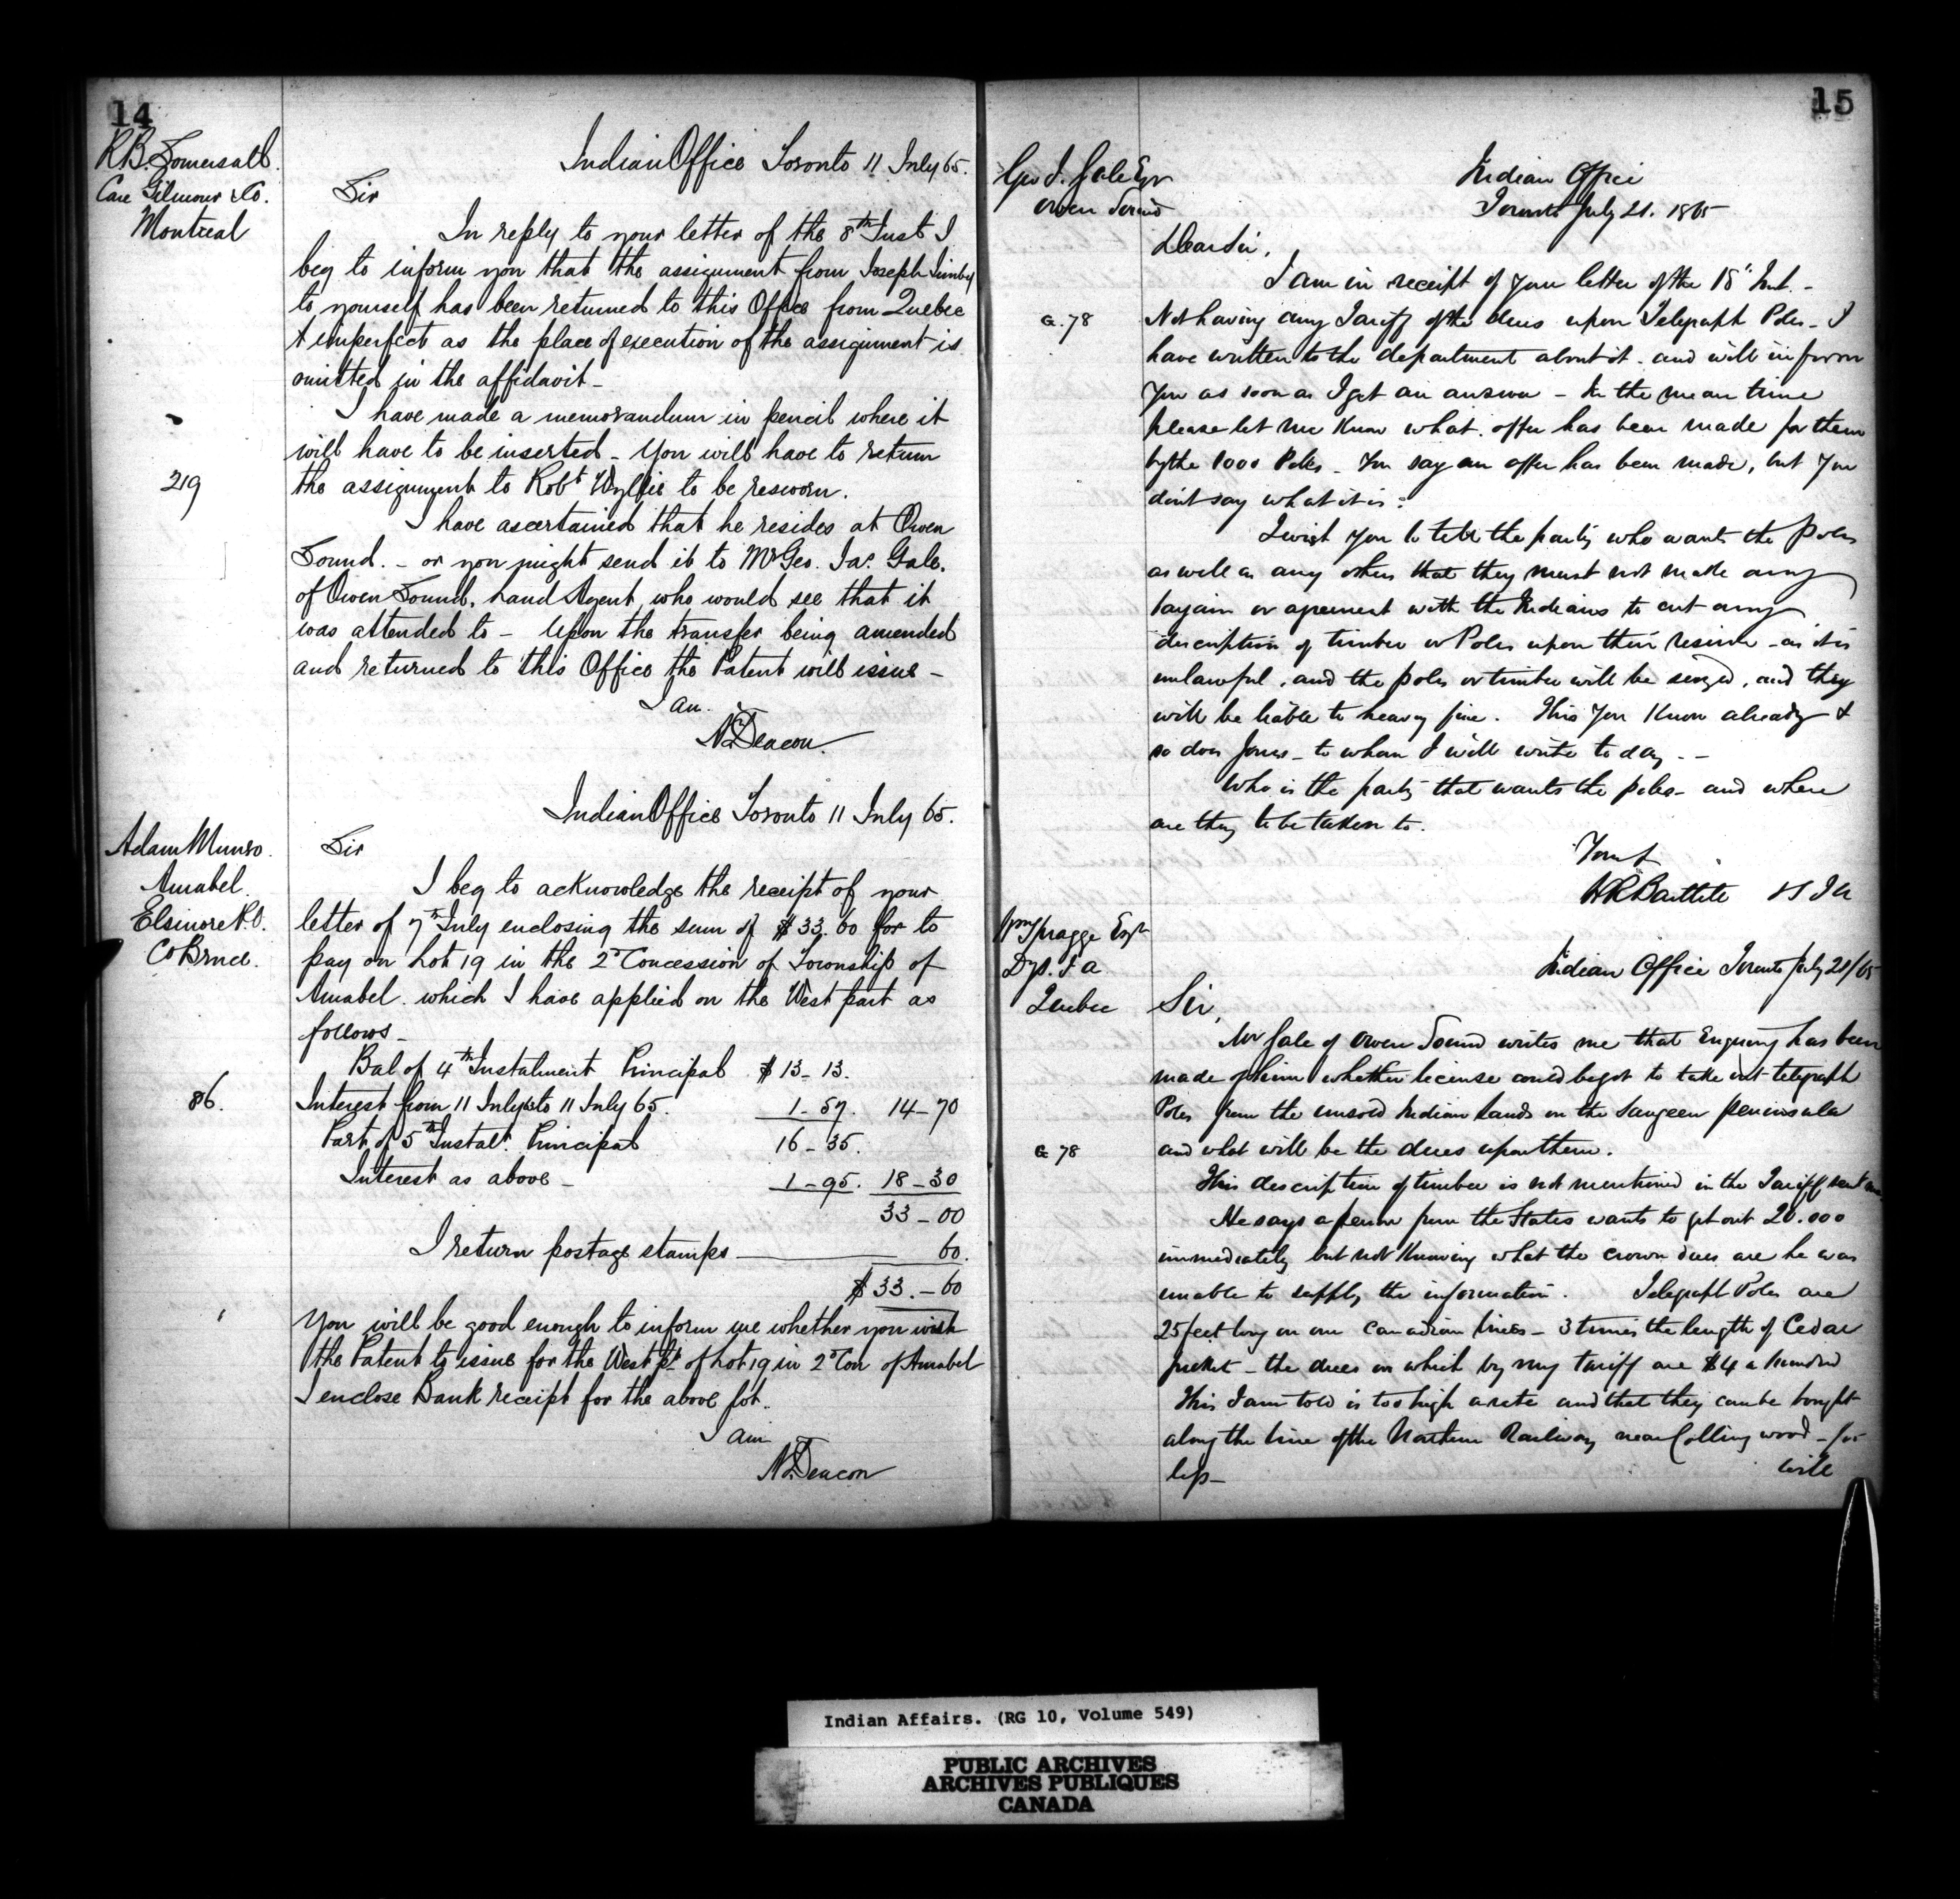 14
R B. Somersall.
Care Gilmour & Co.
Montreal
Indian Office Toronto 11 July 65.
Sir
In reply to your letter of the 8th Inst I
beg to inform you that the assignment from Joseph
to yourself has been returned to this Office from Quebec
imperfect as the place of execution of the assignment is
omitted in the affidavit -
I have made a memorandum in pencil where it
will have to be inserted - You will have to return
219
the assignment to Robt Wyllie to be resworn.
I have ascertained that he resides at Owen
Sound. - or you might send it to Mr Geo. Jas. Gale,
of Owen Sound, Land Agent who would see that it
was attended to - Upon the transfer being amended
and returned to this Office the Patent will issue -
I am.
Deacon
Indian Office Toronto 11 July 65.
Adam Munro.
Amabel.
Elsinore P.O.
Co Bruce.
Sir
I beg to acknowledge the receipt of your
letter of 7th July enclosing the sum of $33.60 for to
pay on Lot 19 in the 2d Concession of Township of
Amabel which I have applied on the West part as
follows -
Bal of 4th Instalment Principal $13-13.
86.
Interest from 11 July to 11 July 65. 1-57. 14-70
Part of 5th Instalt. Principal 16-35.
Interest as above - 1-95. 18-30
33-00
I return postage stamps 60.
$33.-60
You will be good enough to inform me whether you wish
the Patent to issue for the West pt of Lot 19 in 2d Con of Amabel
I enclose Bank receipt for the above lot.
I am
Deacon
15
Geo J. Gale Esqr
Owen Sound
Indian Office
Toronto July 21. 1865
Dear Sir,
I am in receipt of your letter of the 18th Inst. -
G. 78
Not having any Tariff of the dues upon Telegraph Poles - I
have written to the department about it and will inform
you as soon as I get an answer - In the mean time
please let me know what offer has been made for them
by the 1000 Poles - You say an offer has been made, but you
dont say what it is.
I wish you to tell the party who wants the Poles
as well as any others that they must not make any
bargain or agreement with the Indians to cut any
description of timber or Poles upon their reserve - as it is
unlawful, and the poles or timber will be seized, and they
will be liable to heavy fine. This you know already &
so does Jones - to whom I will write to day - -
Who is the party that wants the poles - and where
are they to be taken to.
Yours
W R Bartlett
Wm Spragge Esqr
Dys. I a
Quebec
Indian Office Toronto July 21/65
Sir,
Mr Gale of Owen Sound writes me that Enquiry has been
made of him whether license could be got to take out telegraph
Poles from the unsold Indian Lands in the Saugeen peninsula
G 78
and what will be the dues upon them.
This description of timber is not mentioned in the Tariff sent me
He says a person from the States wants to get out 20.000
immediately but not knowing what the crown dues are he was
unable to supply the information. Telegraph Poles are
25 feet long on our Canadian lines - 3 times the length of Cedar
picket - the dues on which by my tariff are $4 a hundred
This I am told is too high a rate and that they can be bought
along the line of the Northern Railway near Collingwood - for
less -
will
Indian Affairs. (RG 10, Volume 549)
PUBLIC ARCHIVES
ARCHIVES PUBLIQUES
CANADA